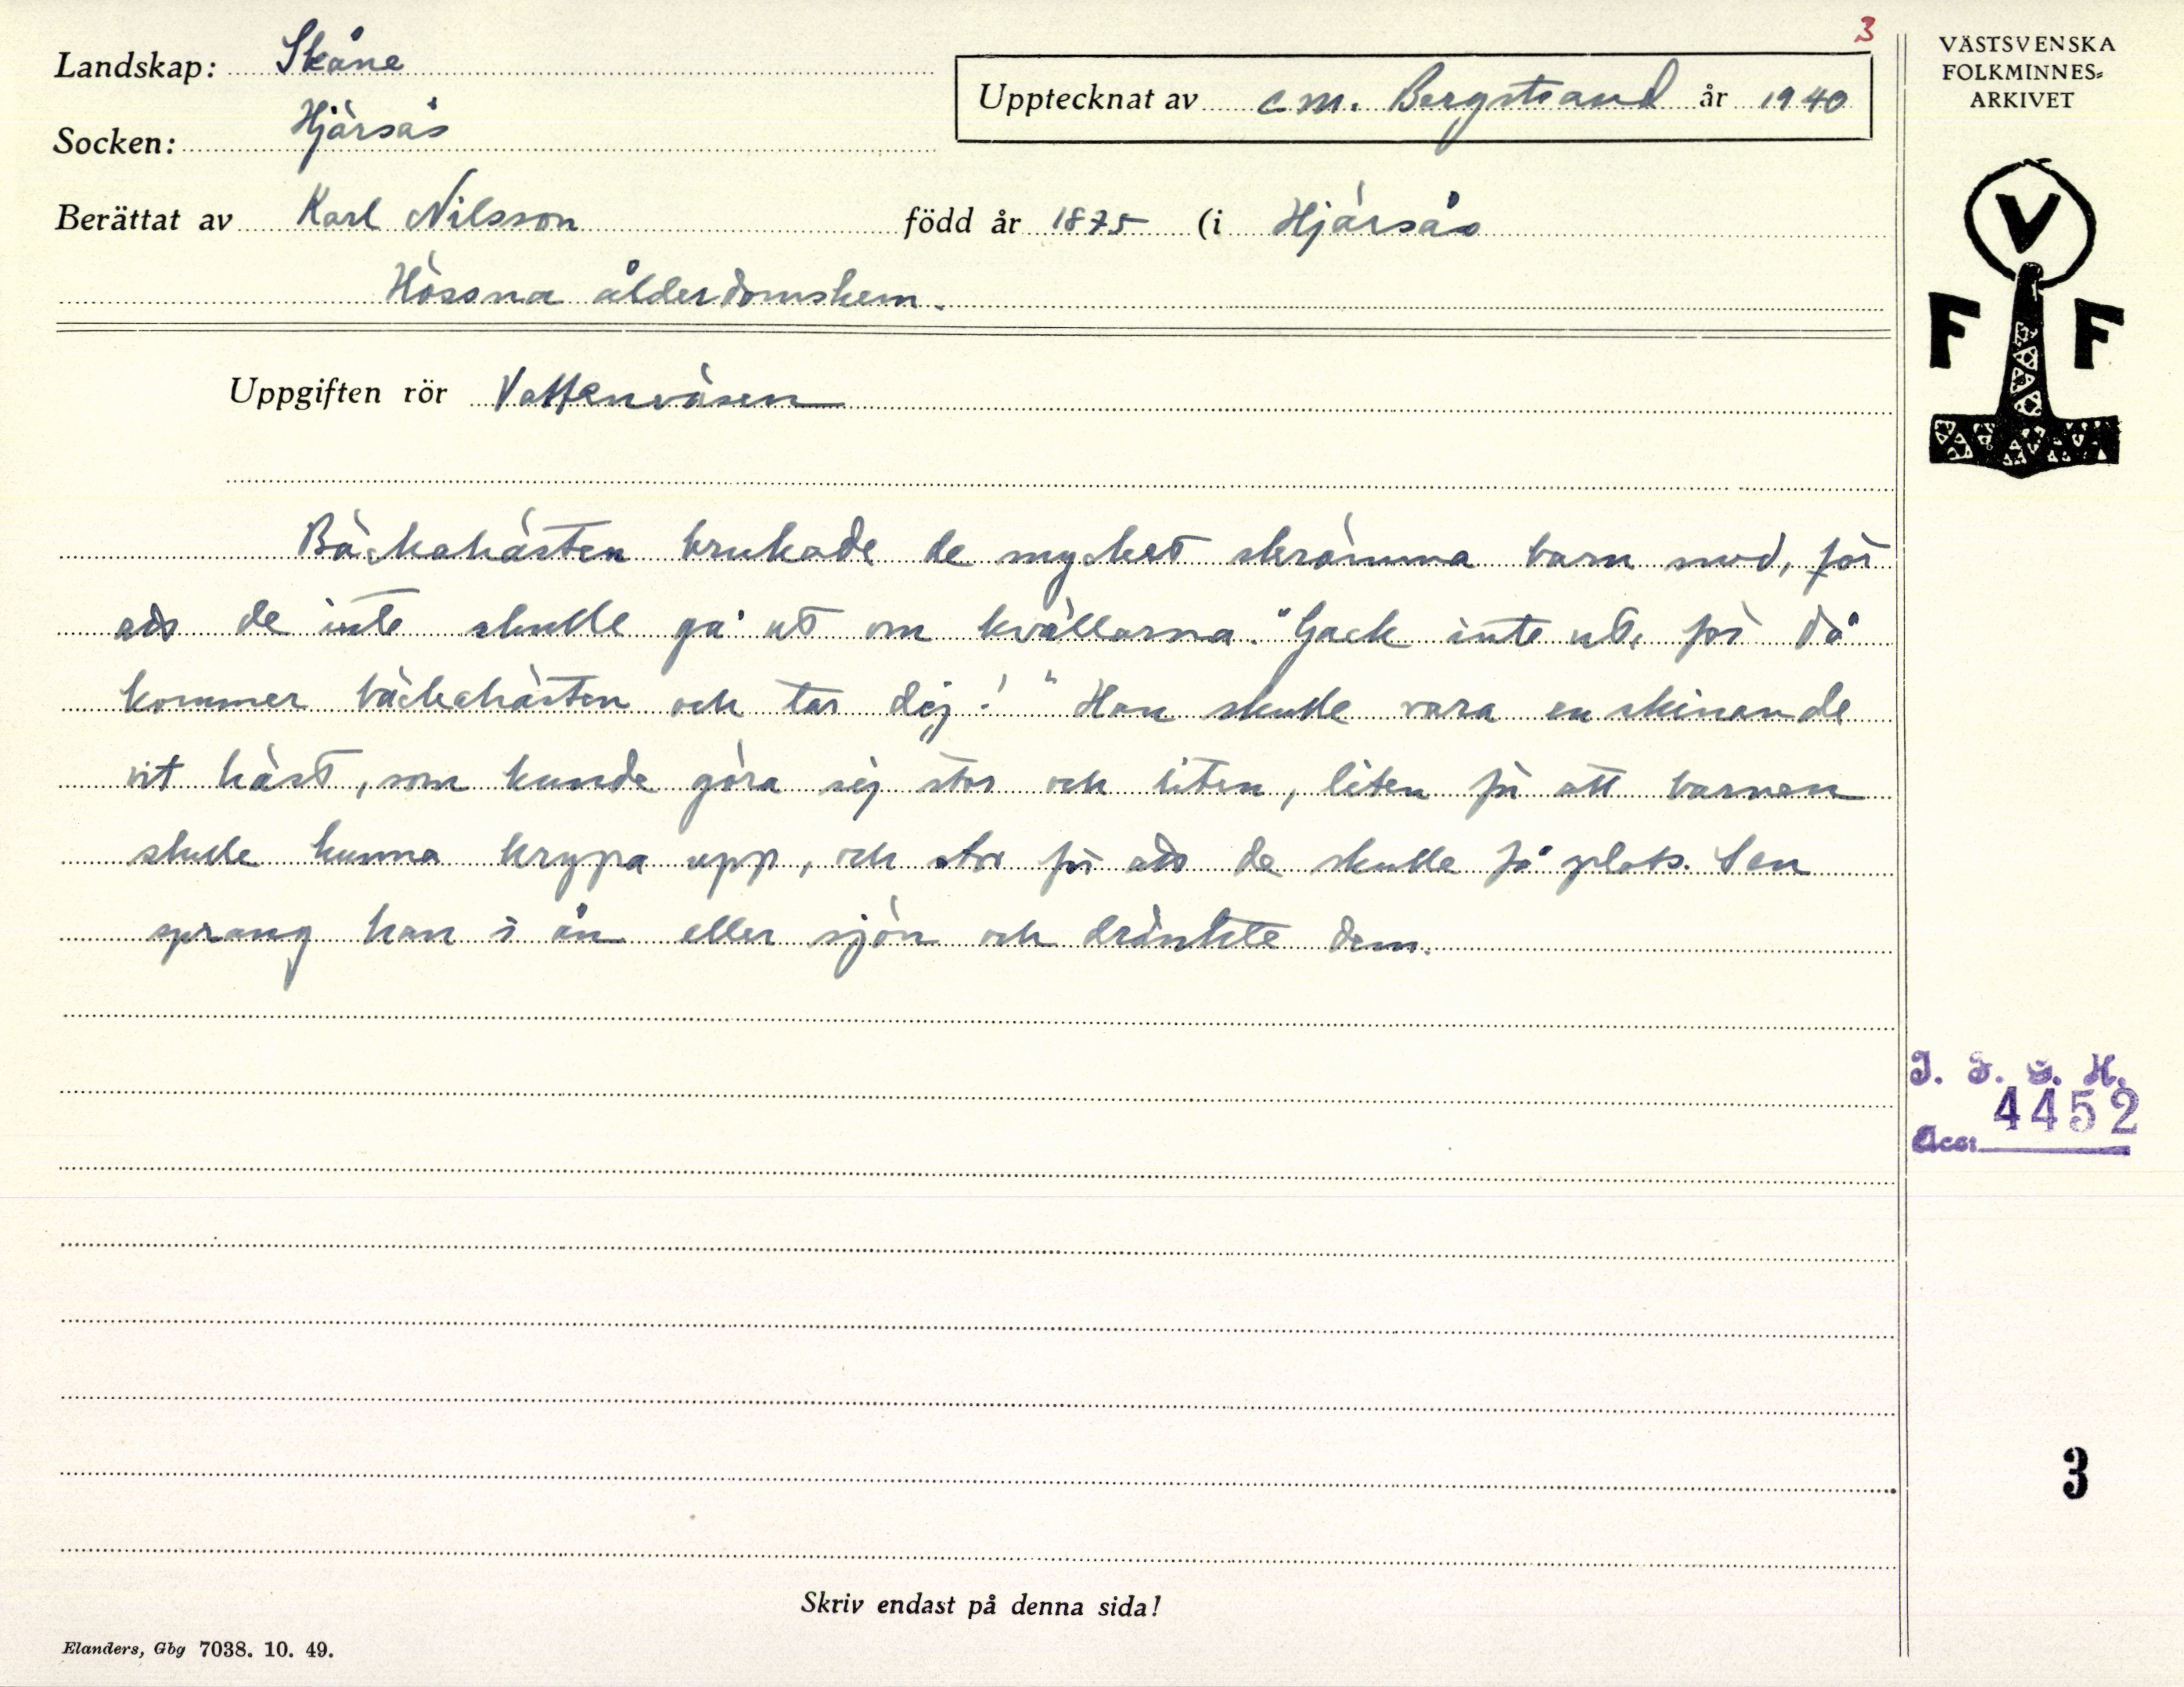 3
Landskap: Skåne
Upptecknat av C.M. Bergstrand år 1940
VÄSTSVENSKA
FOLKMINNES-
ARKIVET
Socken: Hjärsås
Berättat av Karl Nilsson född år 1875 (i Hjärsås
Hössna ålderdomshem.
V
F F
Uppgiften rör Vattenväsen
Bäckahästen brukade de mycket skrämma barn med, för
att de inte skulle gå ut om kvällarna. "Gack inte ut, för då
kommer bäckahästen och tar dig!" Han skulle vara en skinande
vit häst, som kunde göra sig stor och liten, liten för att barnen
skulle kunna krypa upp, och stor för att de skulle få plats. Sen
sprang han i ån eller sjön och dränkte dem.
I. F. G. H.
4452
Acc.
3
Skriv endast på denna sida!
Elanders, Gbg 7038. 10. 49.